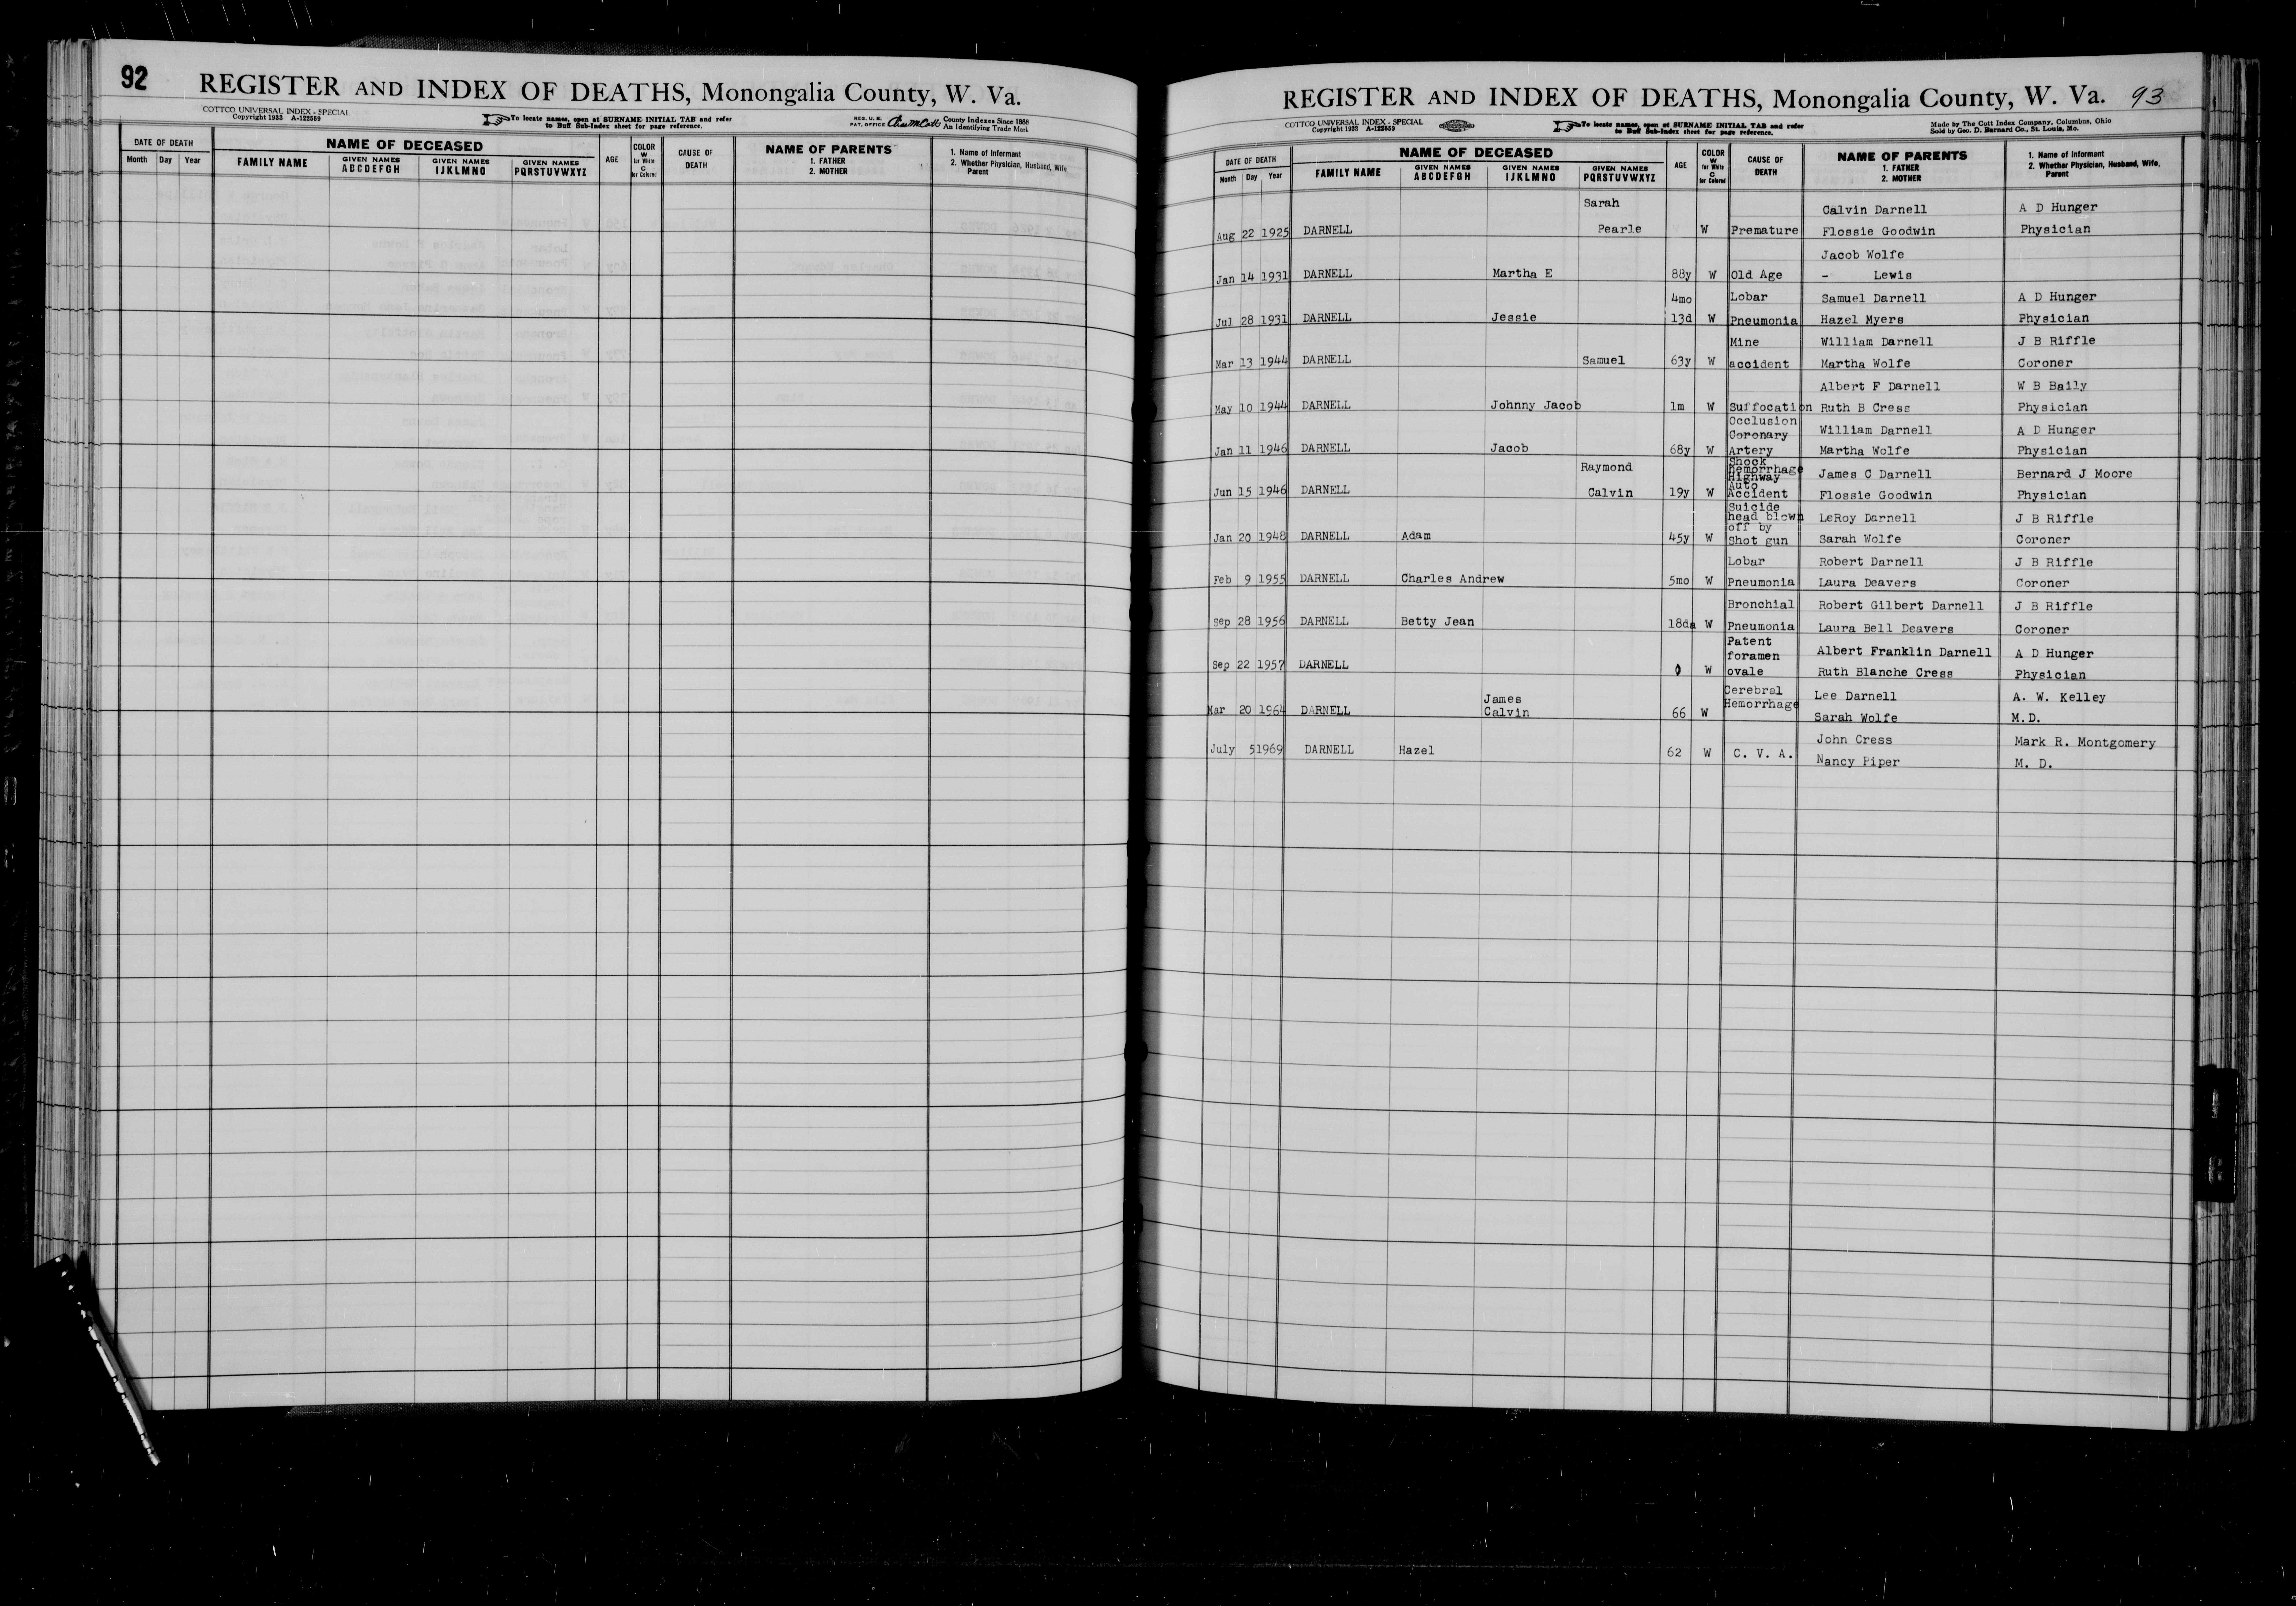 92
REGISTER AND INDEX OF DEATHS, Monongalia County, W. Va.
COTTCO UNIVERSAL INDEX - SPECIAL
Copyright 1933 A-122559
To locate names, open at SURNAME INITIAL TAB and refer
to Buff Sub-Index sheet for page reference.
REG. U. S.
PAT. OFFICE
County Indexes Since 1888
An Identifying Trade Mark
DATE OF DEATH
Month Day Year
NAME OF DECEASED
FAMILY NAME
GIVEN NAMES
ABCDEFGH
GIVEN NAMES
IJKLMNO
GIVEN NAMES
PQRSTUVWXYZ
AGE
COLOR
W
for White
C
for Colored
CAUSE OF
DEATH
NAME OF PARENTS
1. FATHER
2. MOTHER
1. Name of Informant
2. Whether Physician, Husband, Wife,
Parent
REGISTER AND INDEX OF DEATHS, Monongalia County, W. Va. 93
COTTCO UNIVERSAL INDEX - SPECIAL
Copyright 1933 A-122559
To locate names, open at SURNAME INITIAL TAB and refer
to Buff Sub-Index sheet for page reference.
Made by The Cott Index Company, Columbus, Ohio
Sold by Geo. D. Barnard Co., St. Louis, Mo.
DATE OF DEATH
Month Day Year
NAME OF DECEASED
FAMILY NAME
GIVEN NAMES
ABCDEFGH
GIVEN NAMES
IJKLMNO
GIVEN NAMES
PQRSTUVWXYZ
AGE
COLOR
W
for White
C
for Colored
CAUSE OF
DEATH
NAME OF PARENTS
1. FATHER
2. MOTHER
1. Name of Informant
2. Whether Physician, Husband, Wife,
Parent
Sarah Calvin Darnell A D Hunger
Aug 22 1925 DARNELL Pearle W Premature Flossie Goodwin Physician
Jacob Wolfe
Jan 14 1931 DARNELL Martha E 88y W Old Age - Lewis
4mo Lobar Samuel Darnell A D Hunger
Jul 28 1931 DARNELL Jessie 13d W Pneumonia Hazel Myers Physician
Mine William Darnell J B Riffle
Mar 13 1944 DARNELL Samuel 63y W accident Martha Wolfe Coroner
Albert F Darnell W B Baily
May 10 1944 DARNELL Johnny Jacob 1m W Suffocation Ruth B Cress Physician
Occlusion
Coronary William Darnell A D Hunger
Jan 11 1946 DARNELL Jacob 68y W Artery Martha Wolfe Physician
Shock
Raymond Hemorrhage James C Darnell Bernard J Moore
Highway
Auto
Jun 15 1946 DARNELL Calvin 19y W Accident Flossie Goodwin Physician
Suicide
head blown LeRoy Darnell J B Riffle
off by
Jan 20 1948 DARNELL Adam 45y W Shot gun Sarah Wolfe Coroner
Lobar Robert Darnell J B Riffle
Feb 9 1955 DARNELL Charles Andrew 5mo W Pneumonia Laura Deavers Coroner
Bronchial Robert Gilbert Darnell J B Riffle
Sep 28 1956 DARNELL Betty Jean 18da W Pneumonia Laura Bell Deavers Coroner
Patent
foramen Albert Franklin Darnell A D Hunger
Sep 22 1957 DARNELL 0 W ovale Ruth Blanche Cress Physician
James Cerebral Lee Darnell A. W. Kelley
Hemorrhage
Mar 20 1964 DARNELL Calvin 66 W Sarah Wolfe M.D.
John Cress Mark R. Montgomery
July 5 1969 DARNELL Hazel 62 W C. V. A. Nancy Piper M. D.